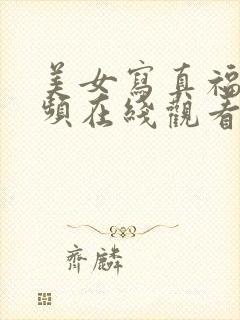 美女寫真福
頻在綫觀看
齊麟